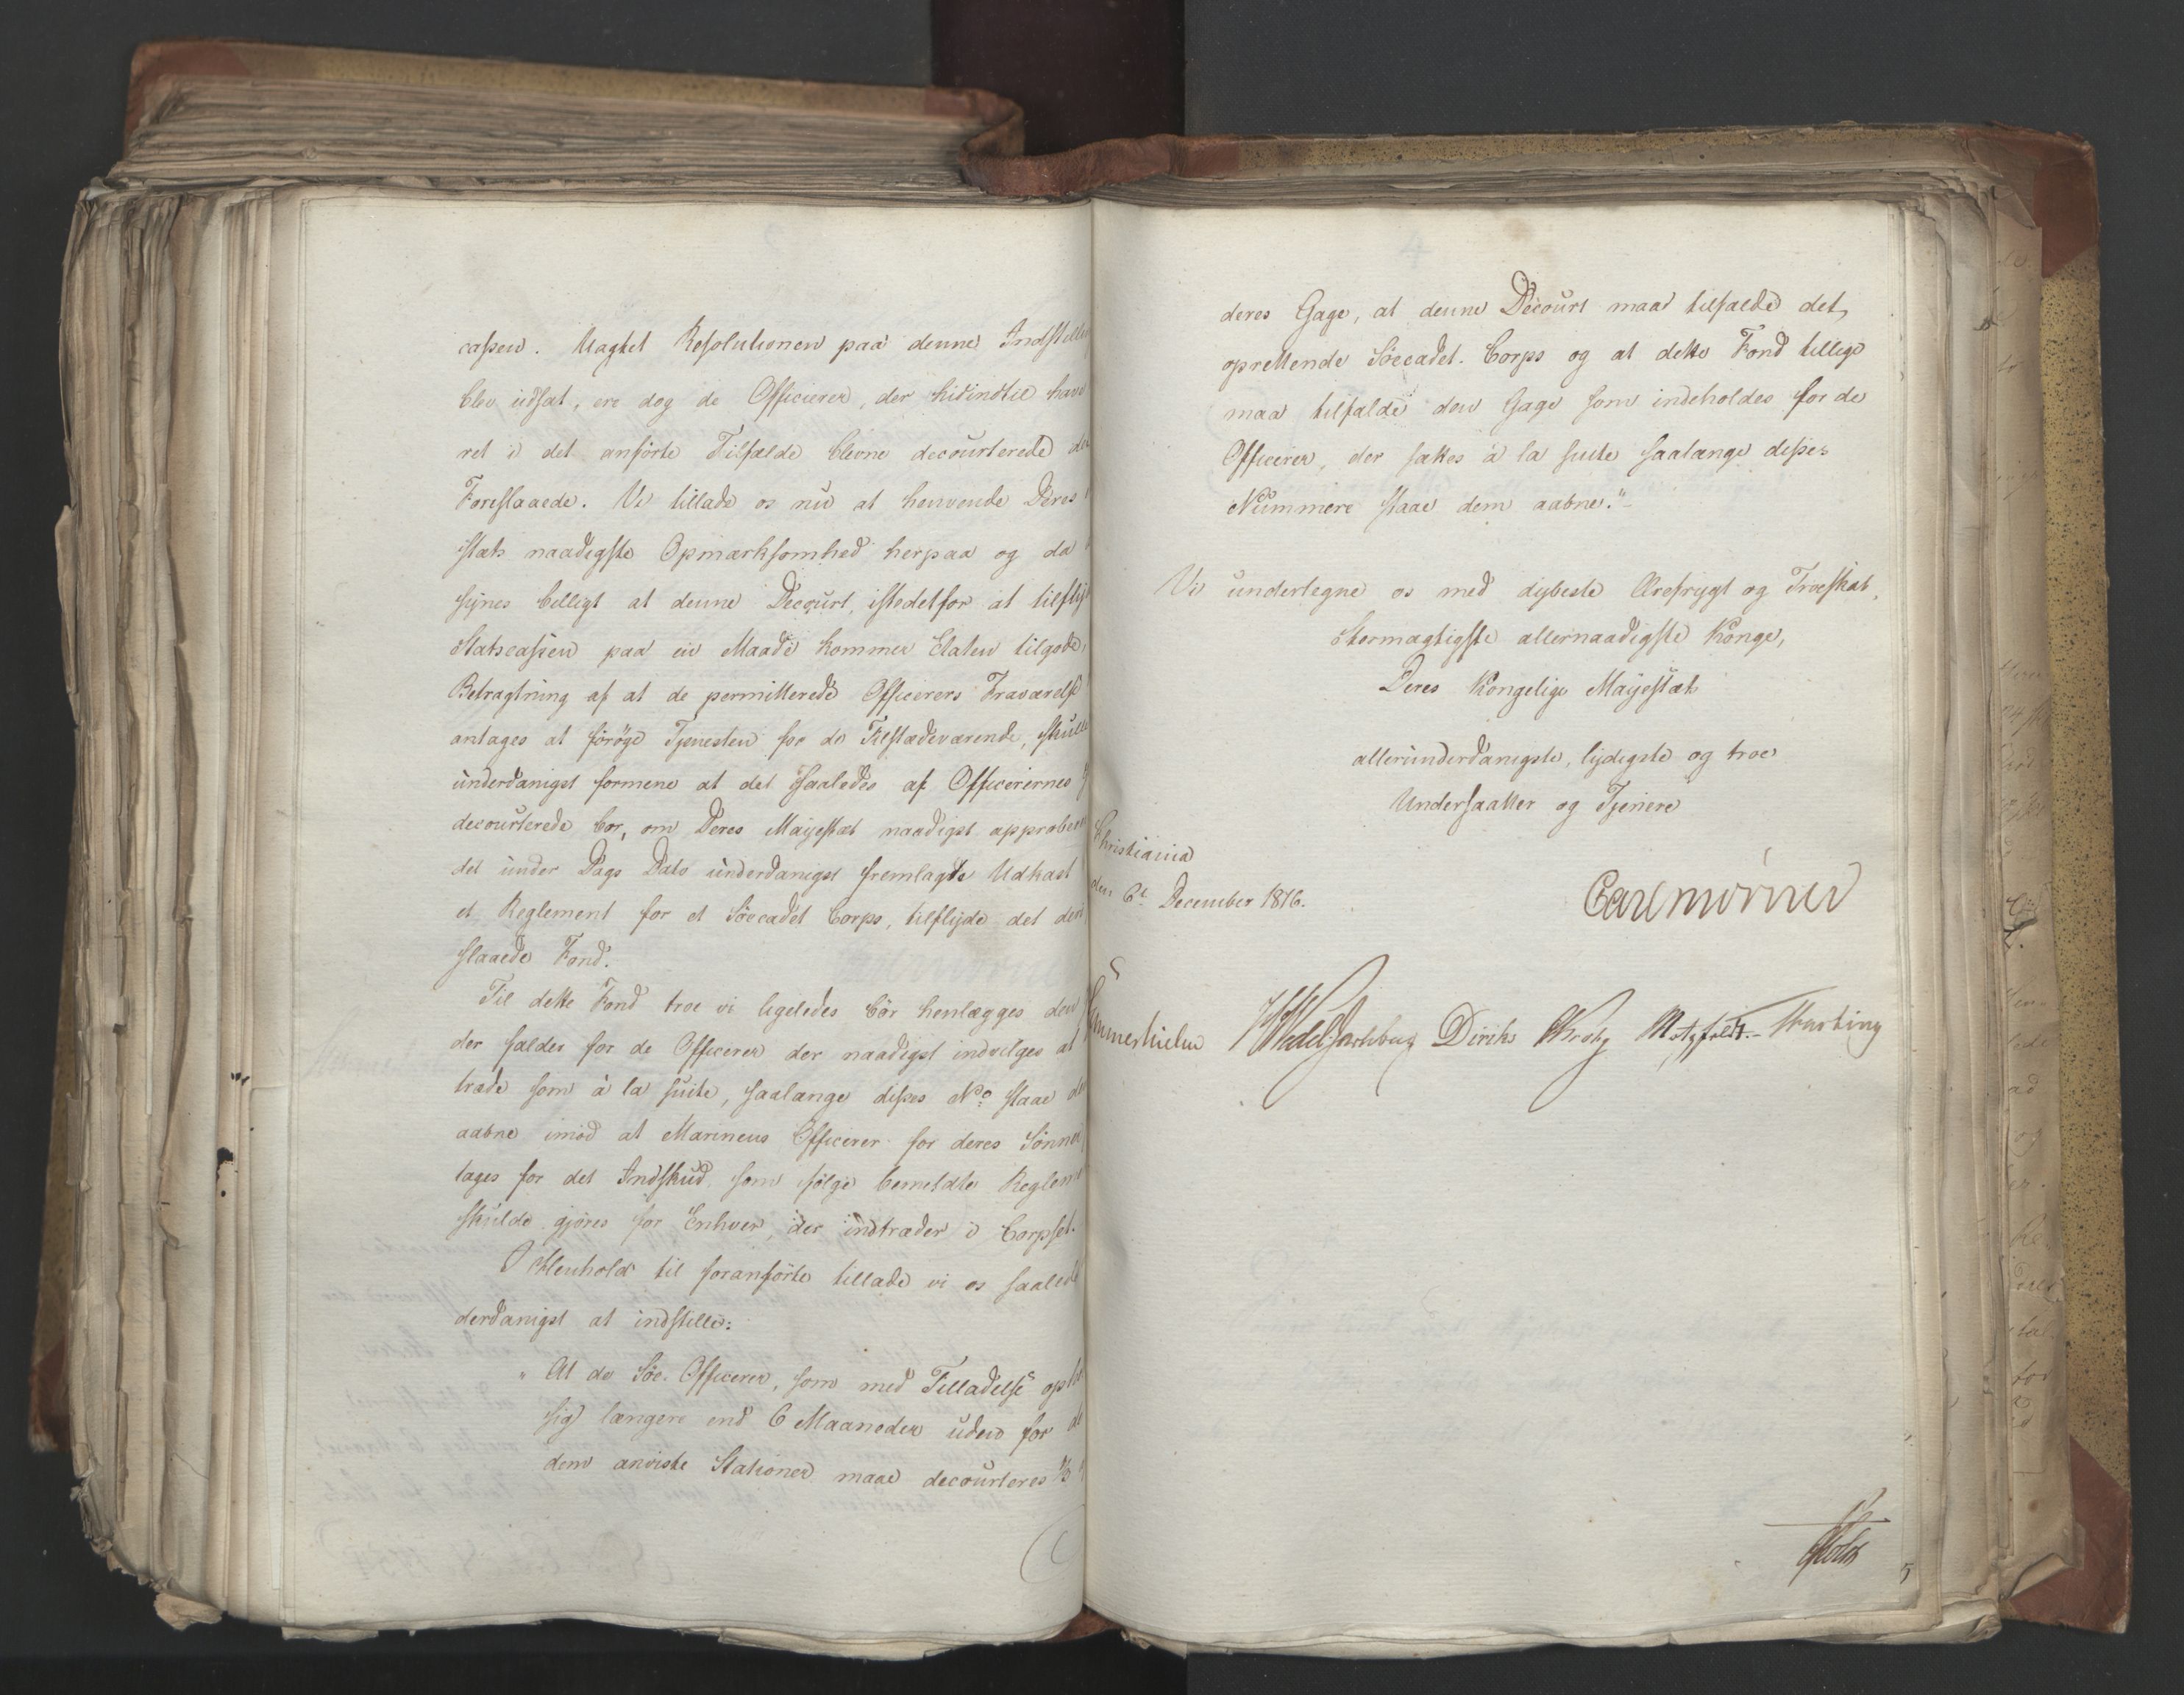 casſen. Uagtet Resolutionen paa denne Indstilling
blev udsat, ere dog de Officierer, der hidindtil have
ret i det anførte Tilfælde blevne decourterede den
Foreslaaede. Vi tillade os nu at henvende Deres
istæts naadigste Opmærksomhed herpaa og da
synes billigt at denne Decourt, istedetfor at tilfly
Statscasſen paa en Maade kommer Etaten tilgode,
Betragtning af at de permitterede Officerers Fraværelse
antages at forøge Tjenesten for de Tilstædeværende, skulle
underdanigst formene at det saaledes af Officerernes
decourterede bør, om Deres Majestæt naadigst approberer
det under Dags Dato underdanigst fremlagte Udkast
et Reglement for et Söecadet Corps, tilflyde det der
slaaede Fond.
Til dette Fond troe vi ligeledes bör henlægges den
der falder for de Officerer der naadigst indvilges at
træde som à la suite, saalænge disſes No staae de
aabne imod at Marinens Officerer for deres Sönner
tages for det Indskud, som följe bemeldte Reglem
skulde gjöres for Enhver, der indtræder i Corpset.
I Henhold til foranförte tillade vi os saaled
derdanigst at indstille:
" At de Söe-Officerer, som med Tilladelse opho
sig længere end 6 Maaneder uden for de
dem anviste Stationer maae decourteres 1/3
deres Gage, at denne Decourt maa tilfalde det,
oprettende Söecadet-Corps og at dette Fond tillige
maa tilfalde den Gage som indeholdes for de
Officerer, der sættes à la suite saalænge disſes
Nummere staae dem aabne."
Vi undertegne os med dybeste Ærefrygt og Troeskab,
Stormægtigste allernaadigste Konge,
Deres Kongelige Majestæts
allerunderdanigste, lydigste og troe
Undersaatter og Tjenere
Christiania
den 6t December 1816.
Carl Mörner
Sommerhielm Wedel Jarlsberg Diriks Krohg Motzfeldt. Hasting
Holst